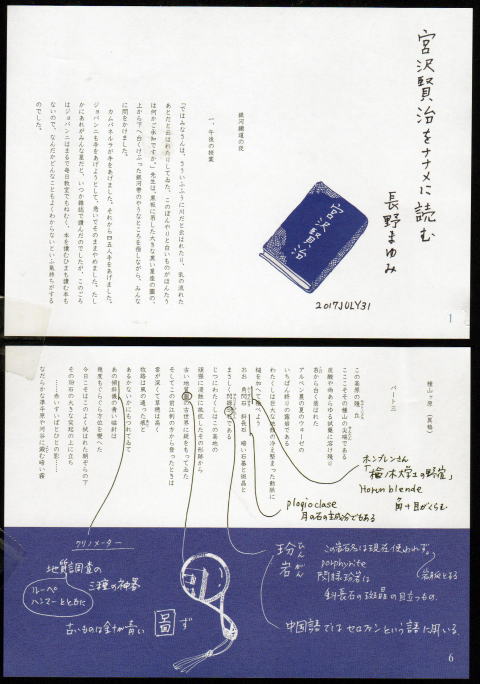 宮沢賢治をナナメに読む
長野まゆみ
宮沢賢治
2017JULY31
1
銀河鐵道の夜
一、午後の授業
「ではみなさんは、さういふふうに川だと云はれたり、乳の流れた
あとだと云はれたりしてゐた、このぼんやりと白いものがほんたう
は何かご承知ですか。」先生は、黒板に吊した大きな黒い星座の圖の、
上から下へ白くけぶった銀河帯のやうなところを指しながら、みんな
に問をかけました。
カムパネルラが手をあげました。それから四五人手をあげました。
ジョバンニも手をあげようとして、急いでそのままやめました。たし
かにあれがみんな星だと、いつか雑誌で讀んだのでしたが、このごろ
はジョバンニはまるで毎日教室でもねむく、本を讀むひまも讀む本も
ないので、なんだかどんなこともよくわからないといふ気持ちがする
のでした。
種山ヶ原(異稿)
パート三
この高原の残丘
こここそその種山の尖端である
炭酸や雨あらゆる試薬に溶け残り
苔から白く装はれた
アルペン農の夏のウィーゼの
いちばん終りの露岩である
わたくしは巨大な地殻の冷え堅まった動脈に
槌を加へて検べよう
おお 角閃石 斜長石 暗い石基と斑晶と
まさしく閃緑玢岩である
じつにわたくしはこの高地の
頑強に浸蝕に抵抗したその形跡から
古い地質圖の古世界に疑をもってゐた
そしてこの前江刺の方から登ったときは
雲が深くて草穂は高く
牧路は風の通った痕と
あるかないかにもつれてゐて
あの傾斜儀の青い磁針は
幾度もぐらぐら方位を變へた
今日こそはこのよく拭はれた朝ぞらの下
その旧石の大きな突起の上に立ち
……赤いすいばとひとの影……
なだらかな準平原や河谷に澱む暗い霧
ホンブレンさん
「楢ノ木大学士の野宿」
Hornblende
角+目がくらむ
plagioclase
月の石の主成分でもある
玢岩
ひん
がん
この岩石名は現在使われず。
porphyrite
閃緑玢岩は
斜長石の斑晶の目立つもの。
中国語ではセロファンという語に用いる。
クリノメーター
地質調査の
三種の神器
ルーペ
ハンマーとともに
古いものは針が青い
圖 ず
6